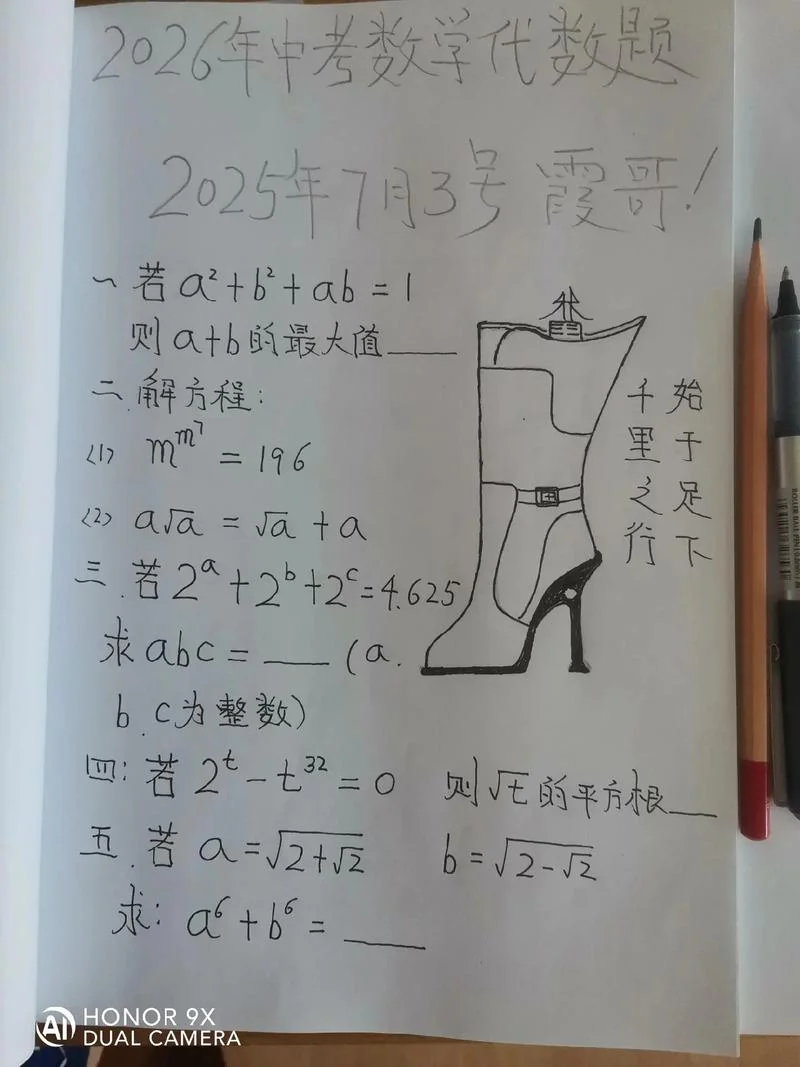 2026年中考数学代数题
2025年7月3号 霞哥!
一 若 a²+b²+ab=1
则 a+b 的最大值____
二.解方程:
(1) m^m^7 = 196
(2) a√a = √a + a
三.若 2^a + 2^b + 2^c = 4.625
求 abc = ____ (a.
b.c为整数)
四: 若 2^t - t^32 = 0 则√t的平方根____
五.若 a=√(2+√2) b=√(2-√2)
求: a⁶+b⁶= ____
千里之行
始于足下
HONOR 9X
DUAL CAMERA